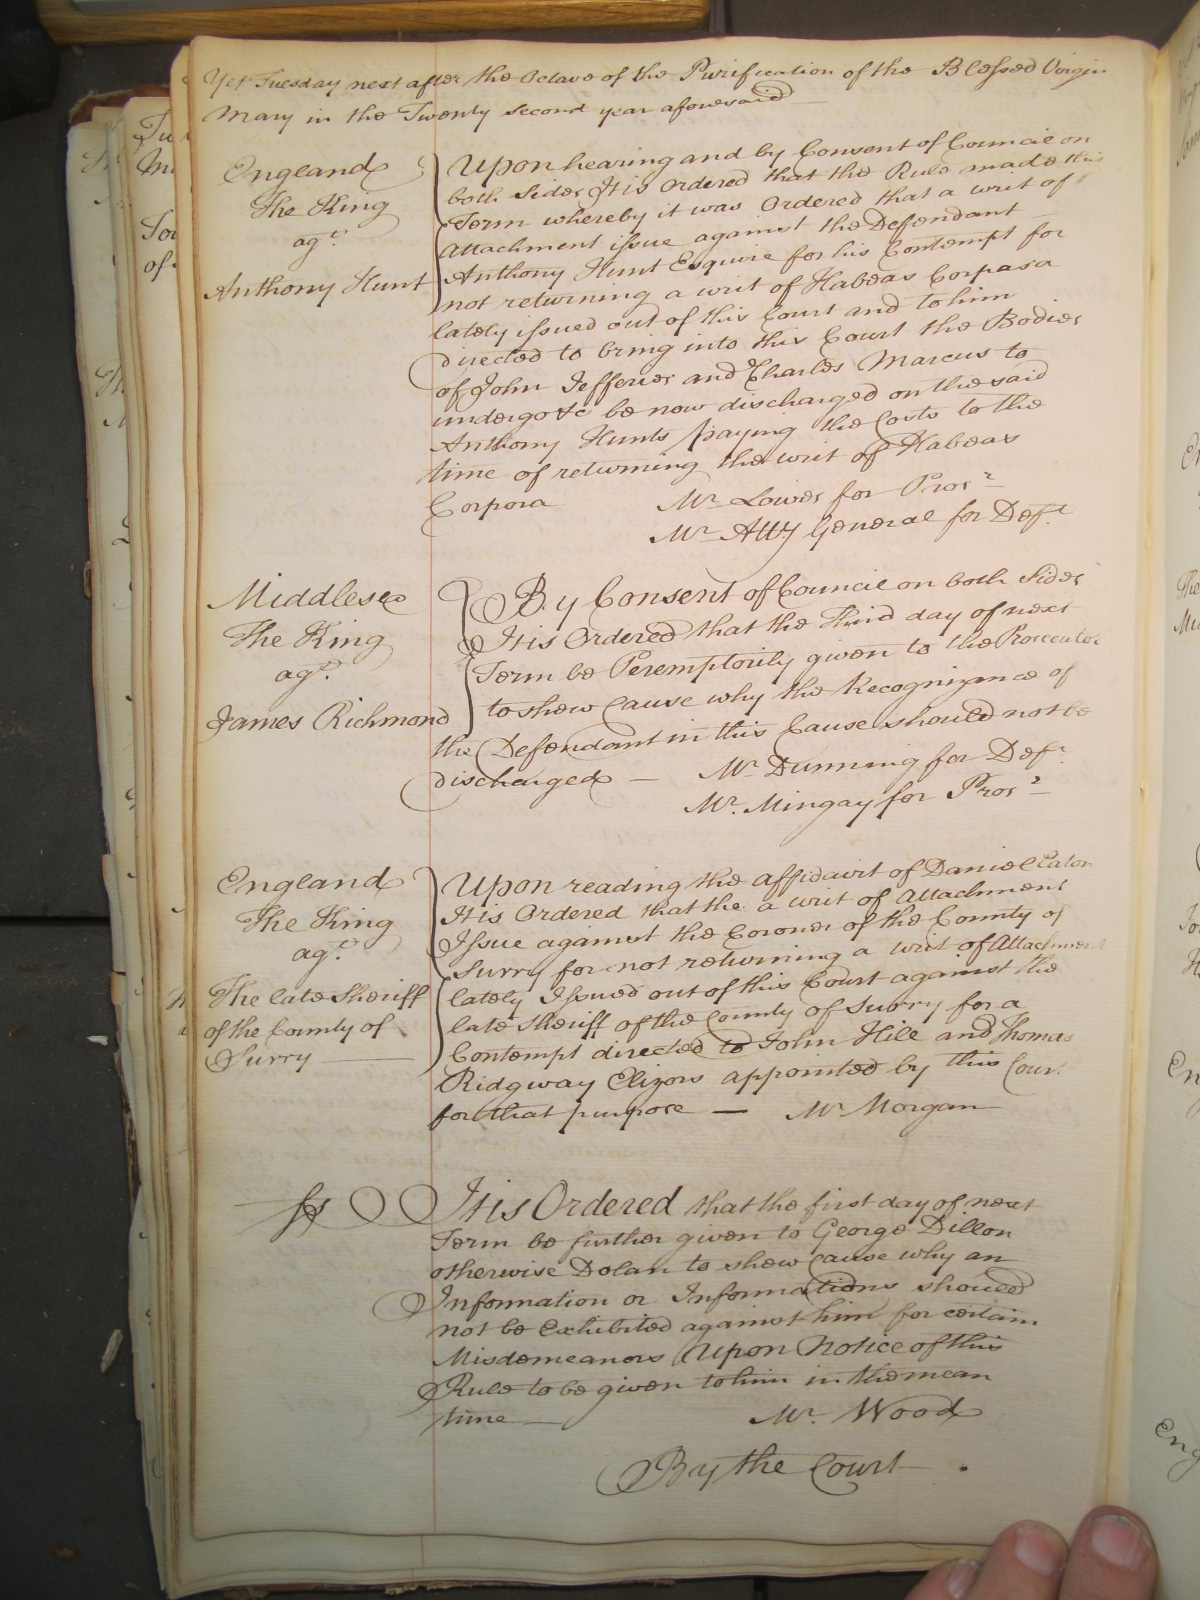 Yet Tuesday next after the Octave of the Purification of the Blessed Virgin
Mary in the Twenty second year aforesaid
England
The King
agt.
Anthony Hunt
Upon hearing and by Consent of Council on
both Sides It is Ordered that the Rule made this
Term whereby it was Ordered that a writ of
Attachment issue against the Defendant
Anthony Hunt Esquire for his Contempt for
not returning a writ of Habeas Corpas a
lately issued out of this Court and to him
directed to bring into this Court the Bodies
of John Jefferies and Charles Marcus to
undergo &c be now discharged on the said
Anthony Hunts paying the Costs to the
time of returning the writ of Habeas
Corpora Mr. Lowes for Prosr.
Mr. Atty General for Deft.
Middlesex
The King
agt.
James Richmond
By Consent of Council on both Sides
It is Ordered that the Third day of next
Term be Peremptorily given to the Prosecutor
to shew Cause why the Recognizance of
the Defendant in this Cause should not be
discharged — Mr. Dunning for Deft.
Mr. Mingay for Prosr.
England
The King
agt.
The late Sheriff
of the County of
Surry
Upon reading the affidavit of Daniel Eaton
It is Ordered that the a writ of Attachment
Issue against the Coroner of the County of
Surry for not returning a writ of Attachment
lately Issued out of this Court against the
late Sheriff of the County of Surry for a
Contempt directed to John Hill and Thomas
Ridgway Elizors appointed by this Court
for that purpose — Mr Morgan
ss It is Ordered that the first day of next
Term be further given to George Dillon
otherwise Dolan to shew Cause why an
Information or Informations should
not be Exhibited against him for certain
Misdemeanors Upon Notice of this
Rule to be given to him in the mean
time — Mr. Wood
By the Court